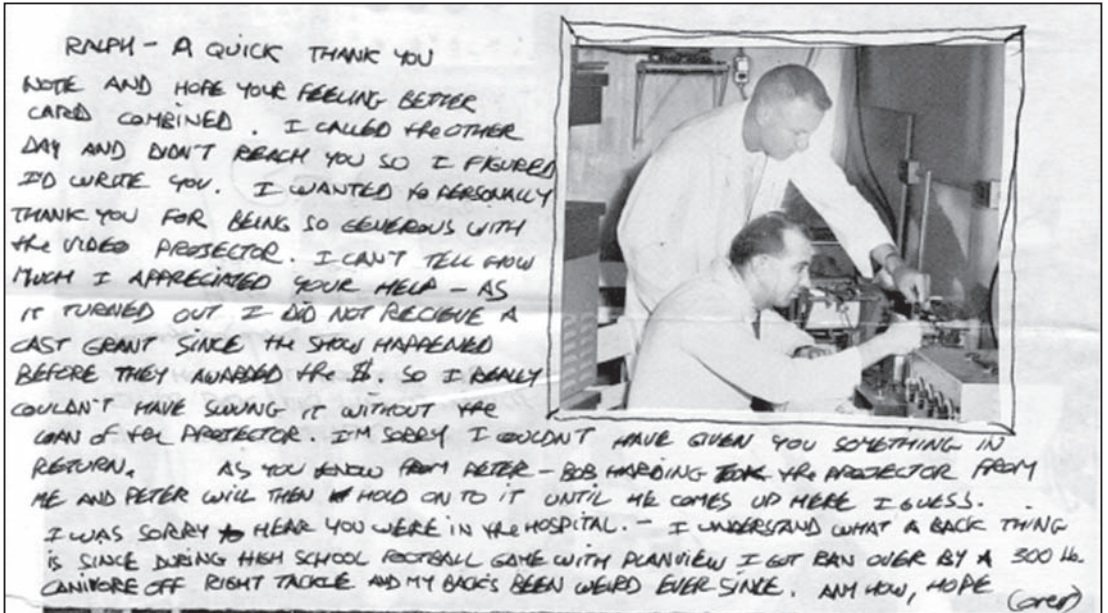 RALPH - A QUICK THANK YOU
NOTE AND HOPE YOUR FEELING BETTER
CARD COMBINED. I CALLED the OTHER
DAY AND DIDN'T REACH YOU SO I FIGURED
I'D WRITE YOU. I WANTED to PERSONALLY
THANK YOU FOR BEING SO GENEROUS WITH
the VIDEO PROJECTOR. I CAN'T TELL HOW
MUCH I APPRECIATED YOUR HELP - AS
IT TURNED OUT I DID NOT RECIEVE A
CAST GRANT SINCE the SHOW HAPPENED
BEFORE THEY AWARDED the $. SO I REALLY
COULDN'T HAVE SWUNG IT WITHOUT the
LOAN of the PROJECTOR. I'M SORRY I COULDN'T HAVE GIVEN YOU SOMETHING IN
RETURN. AS YOU KNOW FROM PETER - BOB HARDING TOOK the PROJECTOR FROM
ME AND PETER WILL THEN HOLD ON TO IT UNTIL HE COMES UP HERE I GUESS.
I WAS SORRY to HEAR YOU WERE IN the HOSPITAL. - I UNDERSTAND WHAT A BACK THING
IS SINCE DURING HIGH SCHOOL FOOTBALL GAME WITH PLANVIEW I GOT RAN OVER BY A 300 lb.
CANIVORE OFF RIGHT TACKLE AND MY BACK'S BEEN WEIRD EVER SINCE. ANY HOW, HOPE
(over)